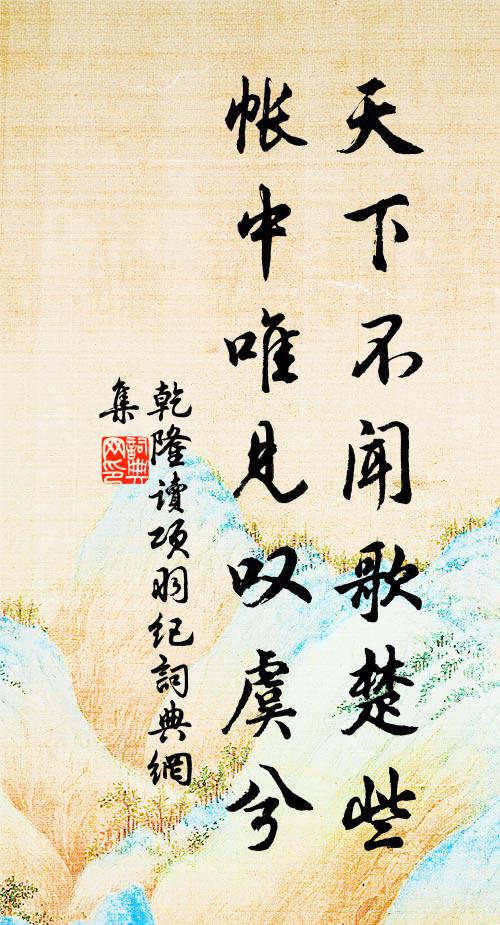 天下不闻歌楚些
帐中唯见叹虞兮
乾隆读项羽纪词典網
集
词典
网印